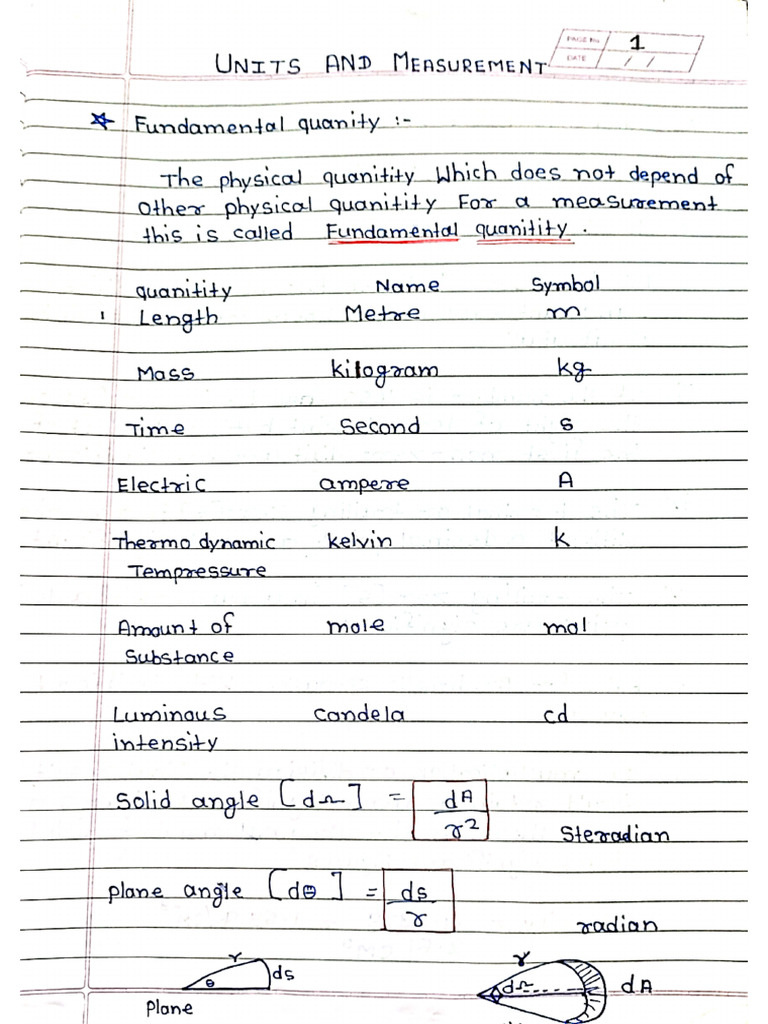 PAGE No. 1
DATE / /
UNITS AND MEASUREMENT
☆ Fundamental quanity :-
The physical quanitity Which does not depend of
other physical quanitity For a measurement
this is called Fundamental quanitity .
quanitity Name Symbol
1 Length Metre m
Mass kilogram kg
Time Second s
Electric ampere A
Thermo dynamic kelvin k
Tempressure
Amount of mole mol
Substance
Luminous candela cd
intensity
Solid angle [dΩ] = dA
r²
Steradian
plane angle [dθ] = ds
r
radian
r
θ ds
r
dΩ dA
Plane